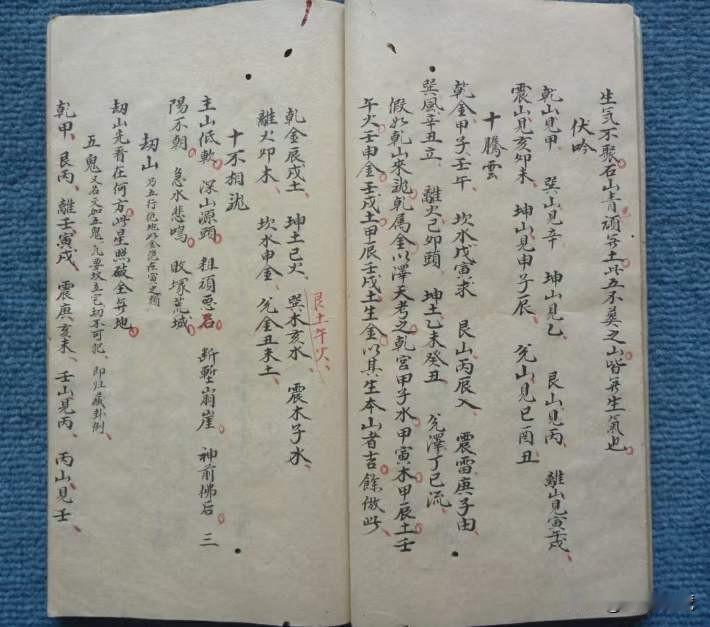 生气不聚石山青頑無土此五不葬之山皆無生氣也
伏吟
乾山見甲 巽山見辛 坤山見乙 艮山見丙 離山見寅午戌
震山見亥卯未 坤山見申子辰 兌山見巳酉丑
十騰雲
乾金甲子壬午 坎水戊寅求 艮山丙辰入 震雷庚子由
巽風辛丑立 離火己卯頭 坤土乙未癸丑 兌澤丁巳流
假如乾山來龍乾属金以澤天考之乾宮甲子水甲寅木甲辰土壬
午火壬申金壬戌土甲辰壬戌土生金以其生本山者吉餘倣此
乾金辰戌土 坤土巳火 巽木亥水 震木子水
艮土午火
離火卯木 坎水申金 兌金丑未土
十不相
主山低軟 深山源頭 粗頑惡石 斬塹崩崖 神前拂后 三
陽不朝 急水悲鳴 敗塚荒城
刼山 为五行绝地如金绝在寅之類
刼山先看在何方 星照破全無地
五鬼又名文加五鬼凢要坟立它切不可犯 即归藏卦例
乾甲艮丙離壬寅戌震庚亥未壬山見丙丙山見壬